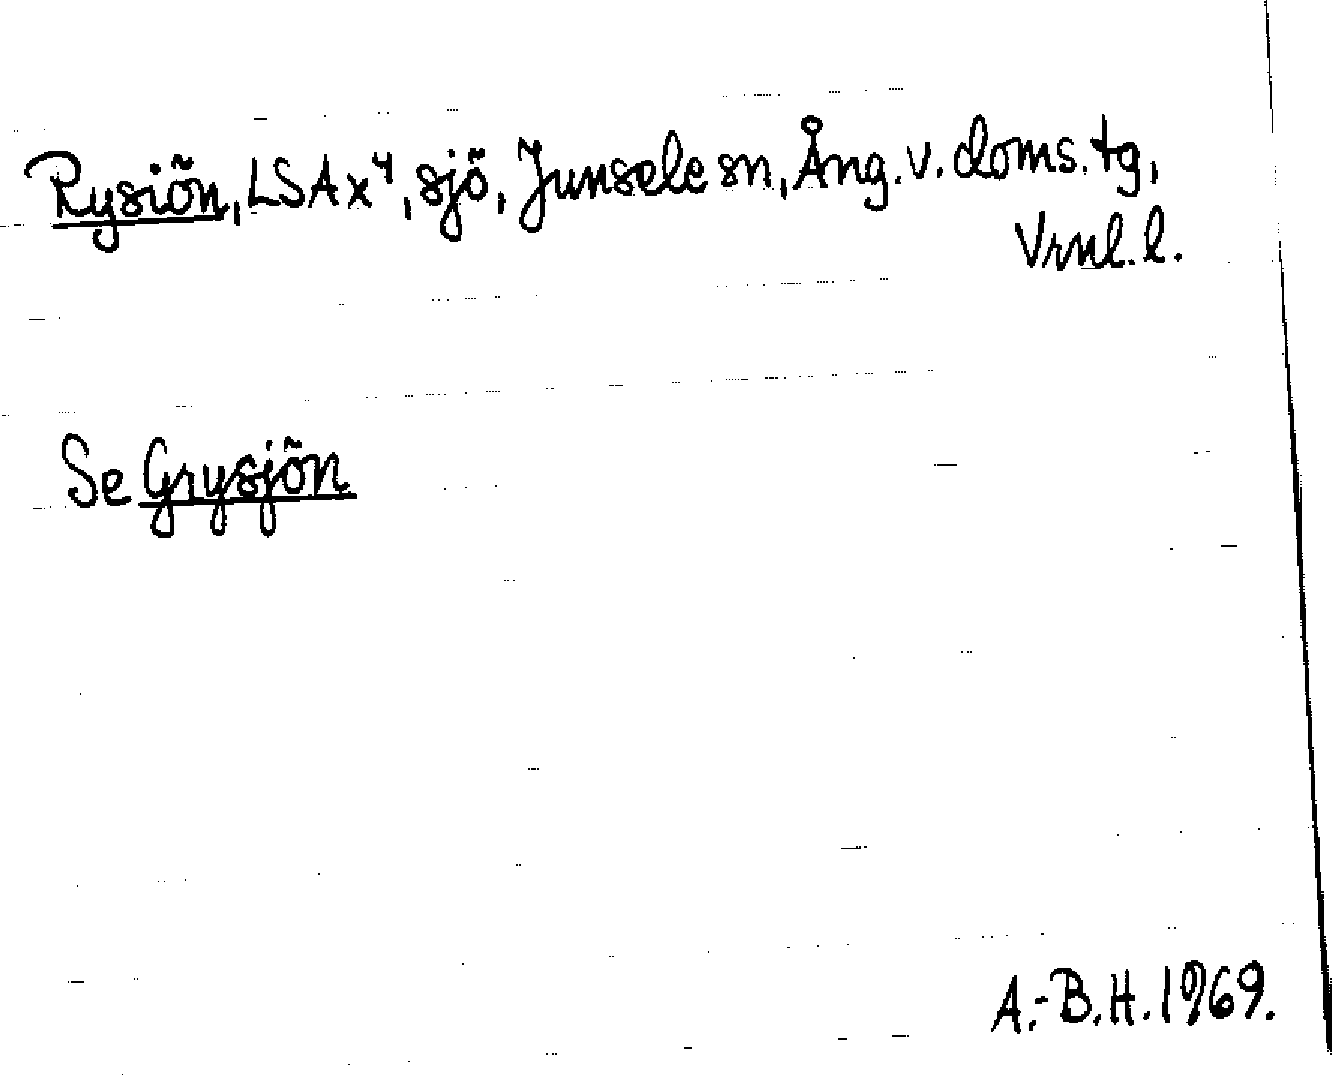 Rysiön, LSA x⁴, sjö, Junsele sn, Ång. v. doms. tg,
Vrnl. l.
Se Grysjön
A.-B. H. 1969.